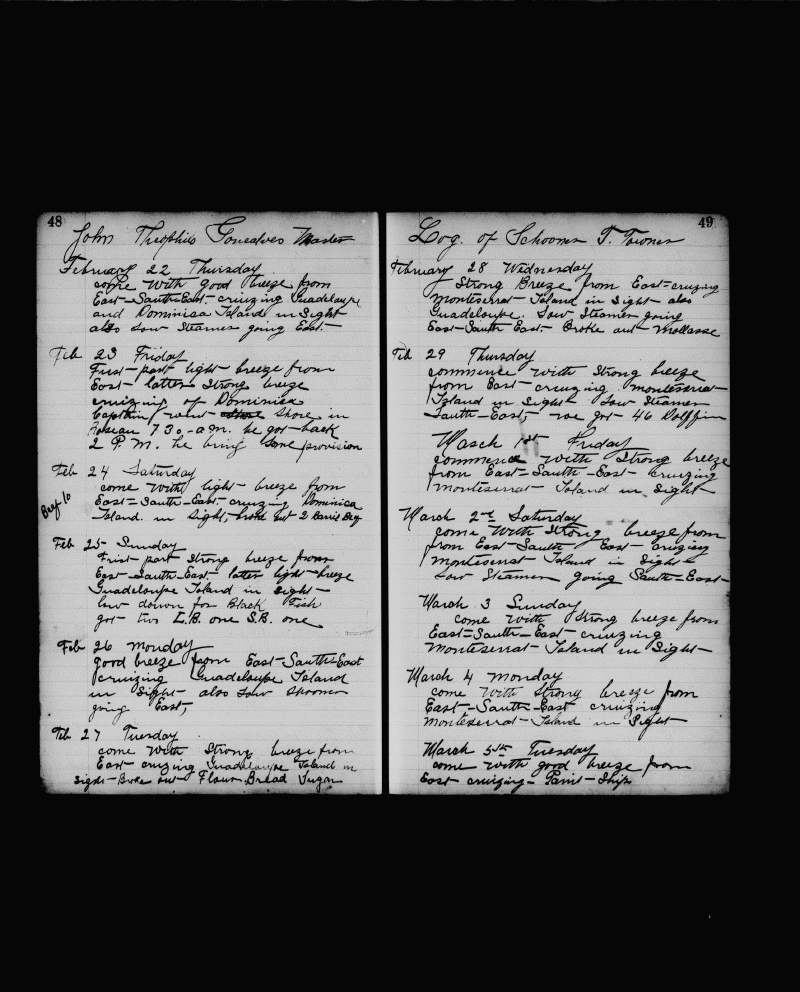 48
John Theophilo Goncalves Master
February 22 Thursday
come with good breeze from
East-South-East cruizing Guadeloupe
and Dominica Island in Sight
also Sow Steamer going East.
Feb 23 Friday
First part light breeze from
East latter Strong breeze
cruizing of Dominica
Captain went shore Shore in
Roseau 7 30 a.m. he got back
2 P.M. he bring Some provision
Feb 24 Saturday
come with light breeze from
East-South-East cruizing Dominica
Beef 10
Island. in Sight, broke out 2 Barrel Beef
Feb 25 Sunday
Frist part Strong breeze from
East-South-East latter light breeze
Guadeloupe Island in Sight
low down for Black Fish
got two L.B. one S.B. one
Feb 26 Monday
good breeze from East-South-East
cruizing Guadeloupe Island
in Sight also Sow Skooner
going East,
Feb 27 Tuesday
come with Strong breeze from
East cruzing Guadeloupe Island in
Sight Broke out Flour Bread Sugar
49
Log. of Schooner T. Towner
February 28 Wednesday
Strong Breeze from East cruzing
Monteserrat Island in Sight also
Guadeloupe. Sow Steamer going
East-South East. Broke out Mollasse
Feb 29 Thursday
commence with Strong breeze
from East cruizing Monteserrat
Island in Sight Sow Steamer
South-East, we got 46 Dolffin
March 1st Friday
commence with Strong breeze
from East-South-East cruizing
Monteserrat Island in Sight
March 2nd Saturday
come with Strong breeze from
from East-South East cruizing
Monteserrat Island in Sight
Sow Steamer going South-East
March 3 Sunday
come with Strong breeze from
East-South-East cruizing
Monteserrat Island in Sight
March 4 Monday
come with Strong breeze from
East-South-East cruizing
Monteserrat Island in Sight
March 5th Tuesday
come with good breeze from
East cruizing Paint Ship